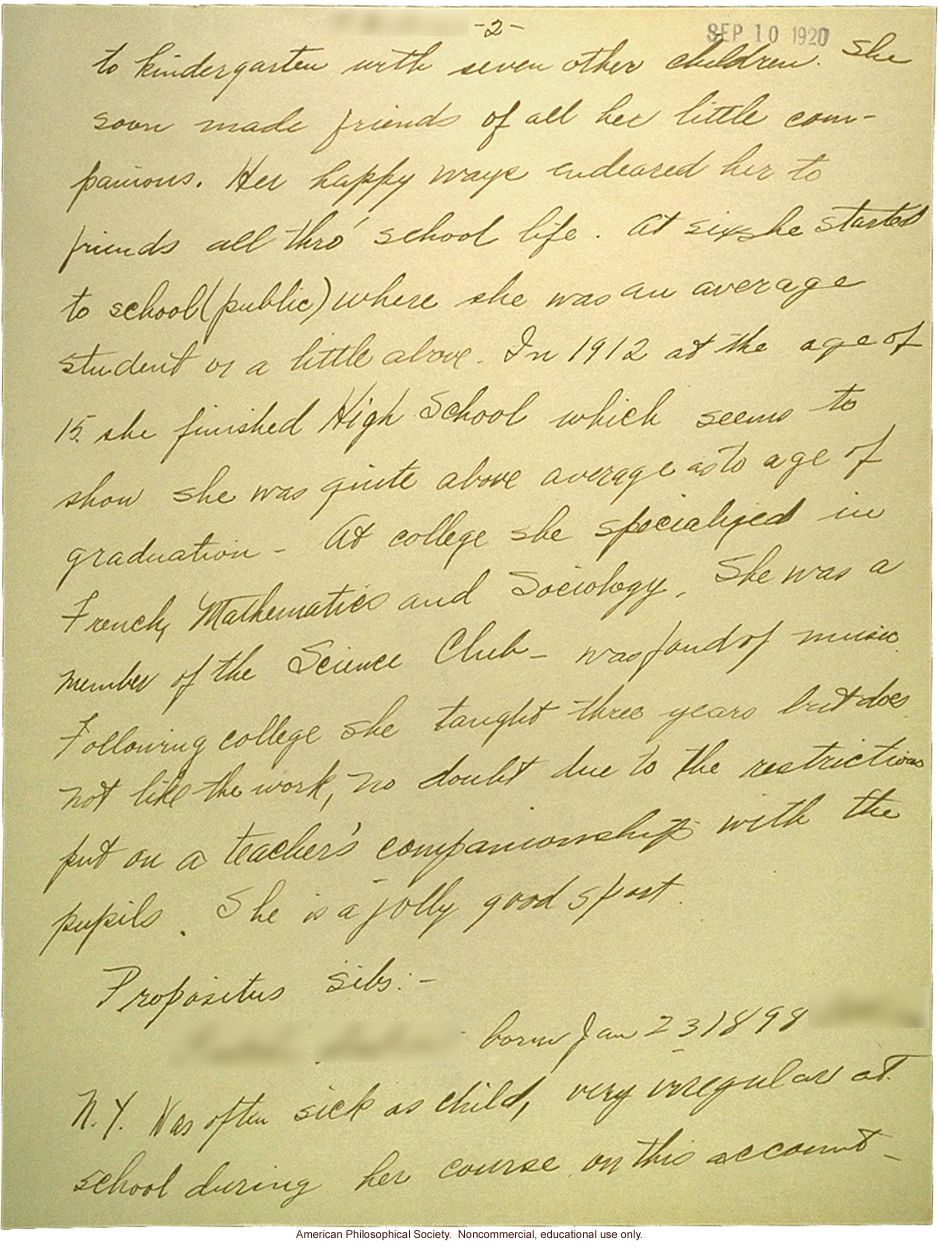 -2-
SEP 10 1920
to kindergarten with seven other children. She
soon made friends of all her little com-
panions. Her happy ways endeared her to
friends all thro' school life. At six she started
to school (public) where she was an average
student or a little above. In 1912 at the age of
15 she finished High School which seems to
show she was quite above average as to age of
graduation - At college she specialized in
French, Mathematics and Sociology. She was a
member of the Science Club - was fond of music.
Following college she taught three years but does
not like the work, no doubt due to the restrictions
put on a teacher's companionship with the
pupils. She is a jolly good sport.
Propositus sibs:-
born Jan 23 1898
N.Y. Was often sick as child, very irregular at
school during her course on this account -
American Philosophical Society. Noncommercial, educational use only.